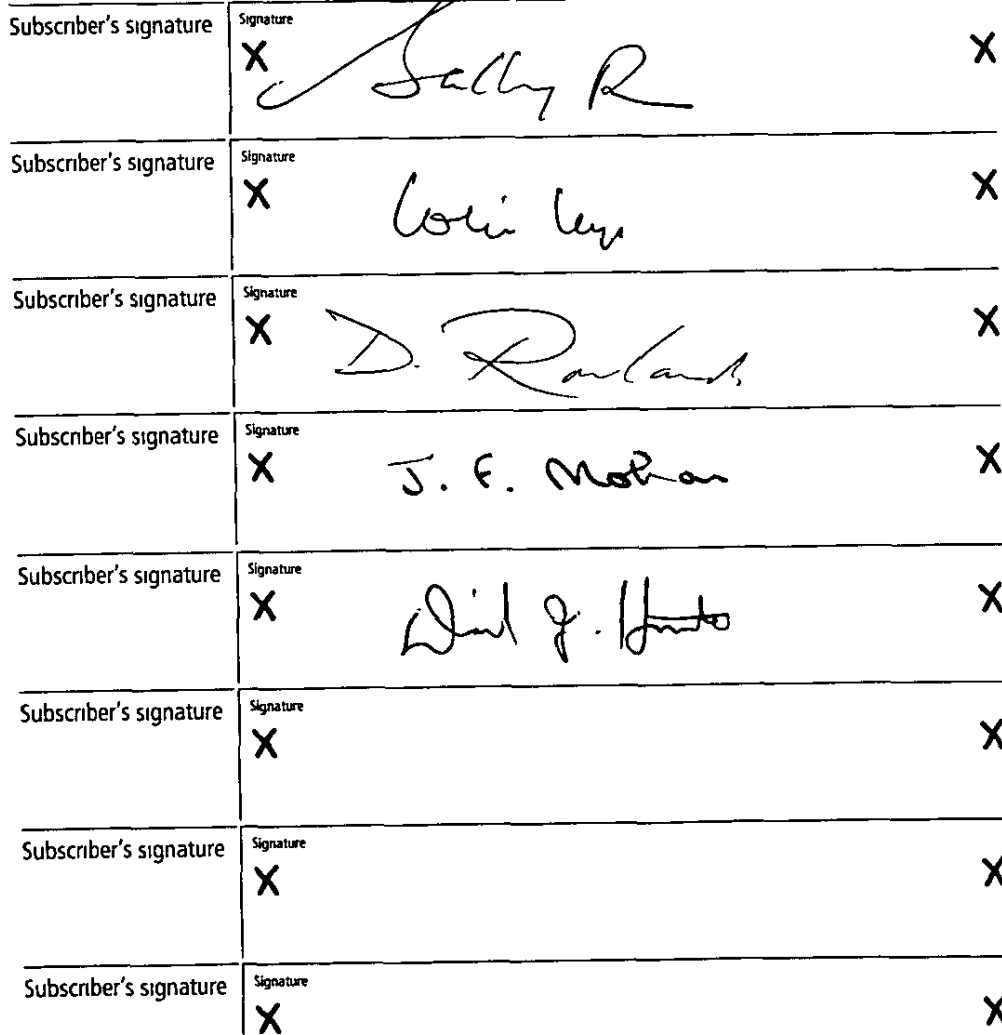 Subscriber's signature
Signature
X X
Sally R
Subscriber's signature
Signature
X X
Colin Leys
Subscriber's signature
Signature
X X
D. Rowlands
Subscriber's signature
Signature
X X
J. F. Mohan
Subscriber's signature
Signature
X X
David J. Hunter
Subscriber's signature
Signature
X X
Subscriber's signature
Signature
X X
Subscriber's signature
Signature
X X